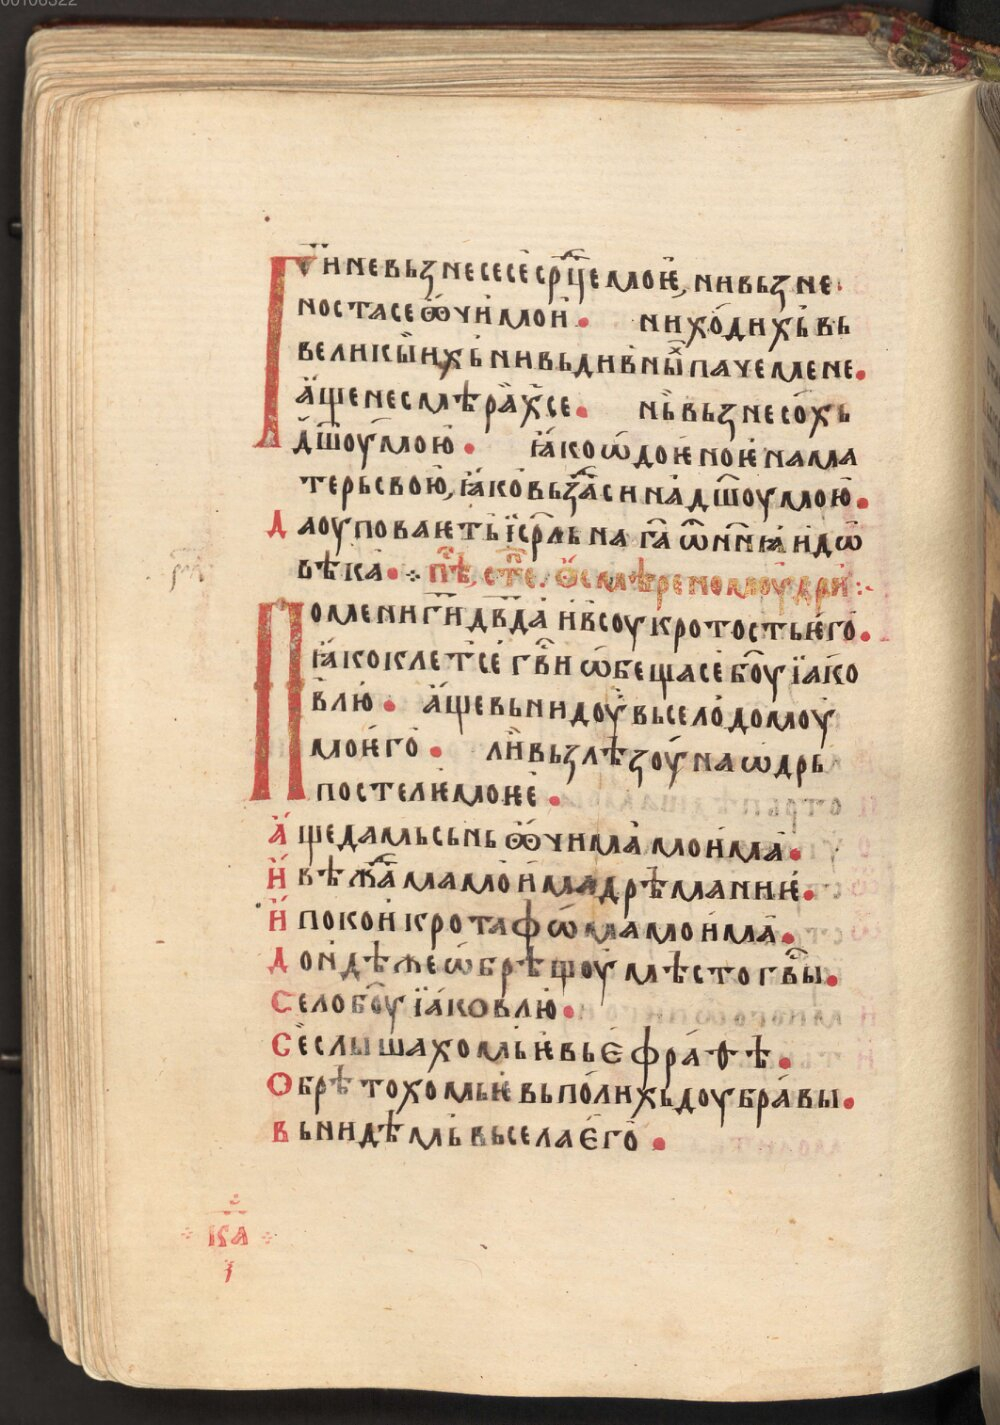 00106322
Ги҃ не вьзнесе се срⷣце мою҆, ни вьзне
носта се ѡ҆чи мои • ни ходихь вь
великыихь ни вь дивныⷯ паче мене •
а҆ще не смѣрꙗⷯ се • нь вьзнесохь
дш҃оу мою • ꙗ҆ко ѿдоѥноѥ на ма
терь свою, ꙗ҆ко вьздаси на дш҃оу мою •
Да оуповаѥть і҆ср҃ль на га҃ ѿ нн҃ꙗ и до
вѣка •
Помени ги҃ дв҃да и всоу кротость ѥго •
ꙗ҆ко клет се гв҃и ѡ҆беща се бо҃у і҆ако
влю • а҆ще вьнидоу вь село домоу
моѥго • ли вьзлѣзоу на ѡдрь
постелѥ моѥѥ •
А҆ще дамь сьнь ѡ҆чима моима •
И҆ вѣжⷣама моима дрѣманиѥ •
И҆ покои кротафѡма моима •
Доидѣже ѡ҆брѣщоу мѣсто гв҃ы •
Село бо҃у і҆аковлю •
Се слышахомь ѥ вь ефраѳѣ •
Обрѣтохомь ѥ вь полихь доубравы •
Вьнидѣмь вь села его •
ка